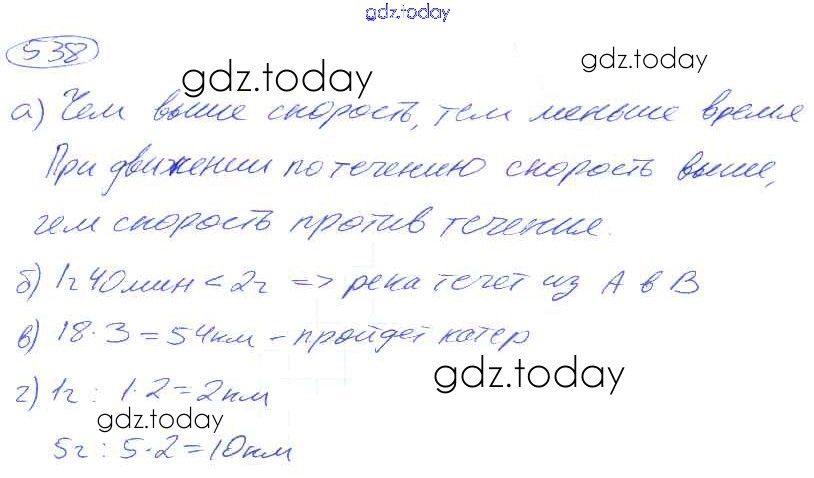 gdz.today
538
gdz.today
gdz.today
а) Чем выше скорость, тем меньше время
При движении по течению скорость выше,
чем скорость против течения.
б) 1ч 40мин < 2ч => река течет из А в В
в) 18·3=54км - пройдет катер
г) 1ч : 1·2=2км
gdz.today
gdz.today
5ч : 5·2=10км